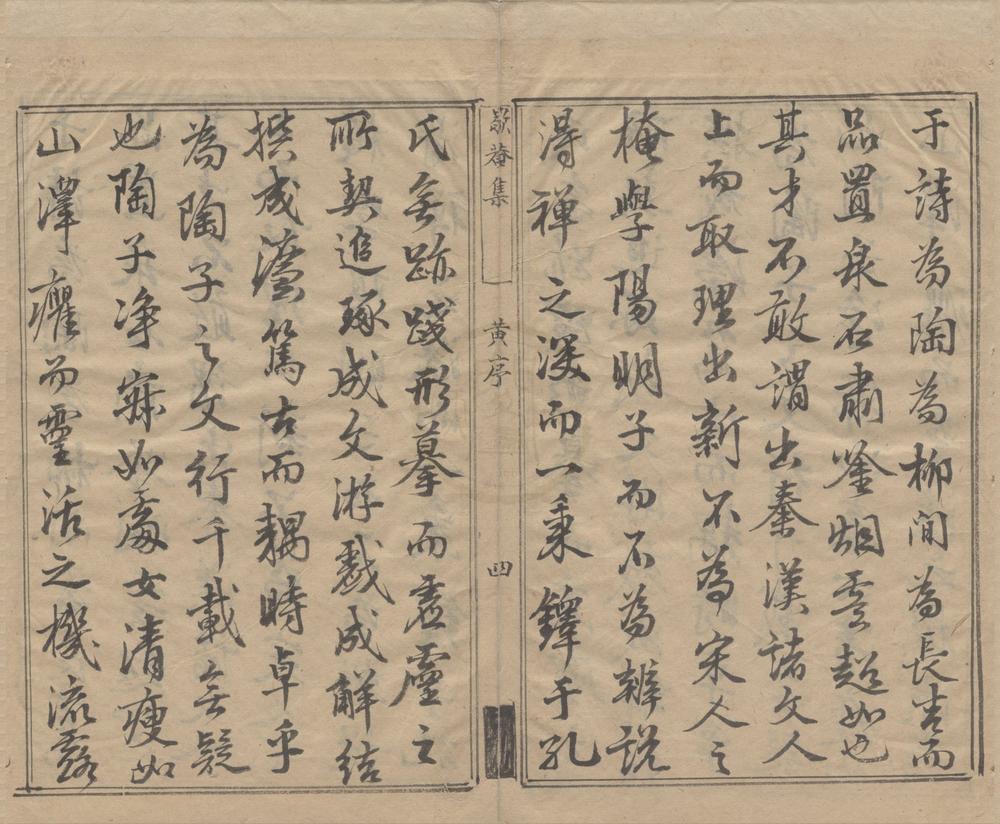 于詩為陶為柳間為長吉而
品置泉石肅鑒烟雲超如也
其才不敢謂出秦漢諸文人
上而取理出新不為宋人之
掩學陽明子而不為辨說
得禪之深而一秉鐸于孔
歇菴集
黃序
四
氏無跡踐形摹而虛靈之
所契追琢成文游戲成解結
撰成濃篤古而耦時卓乎
為陶子之文行千載無疑
也陶子净寐如處女清瘦如
山澤癯而靈活之機流露